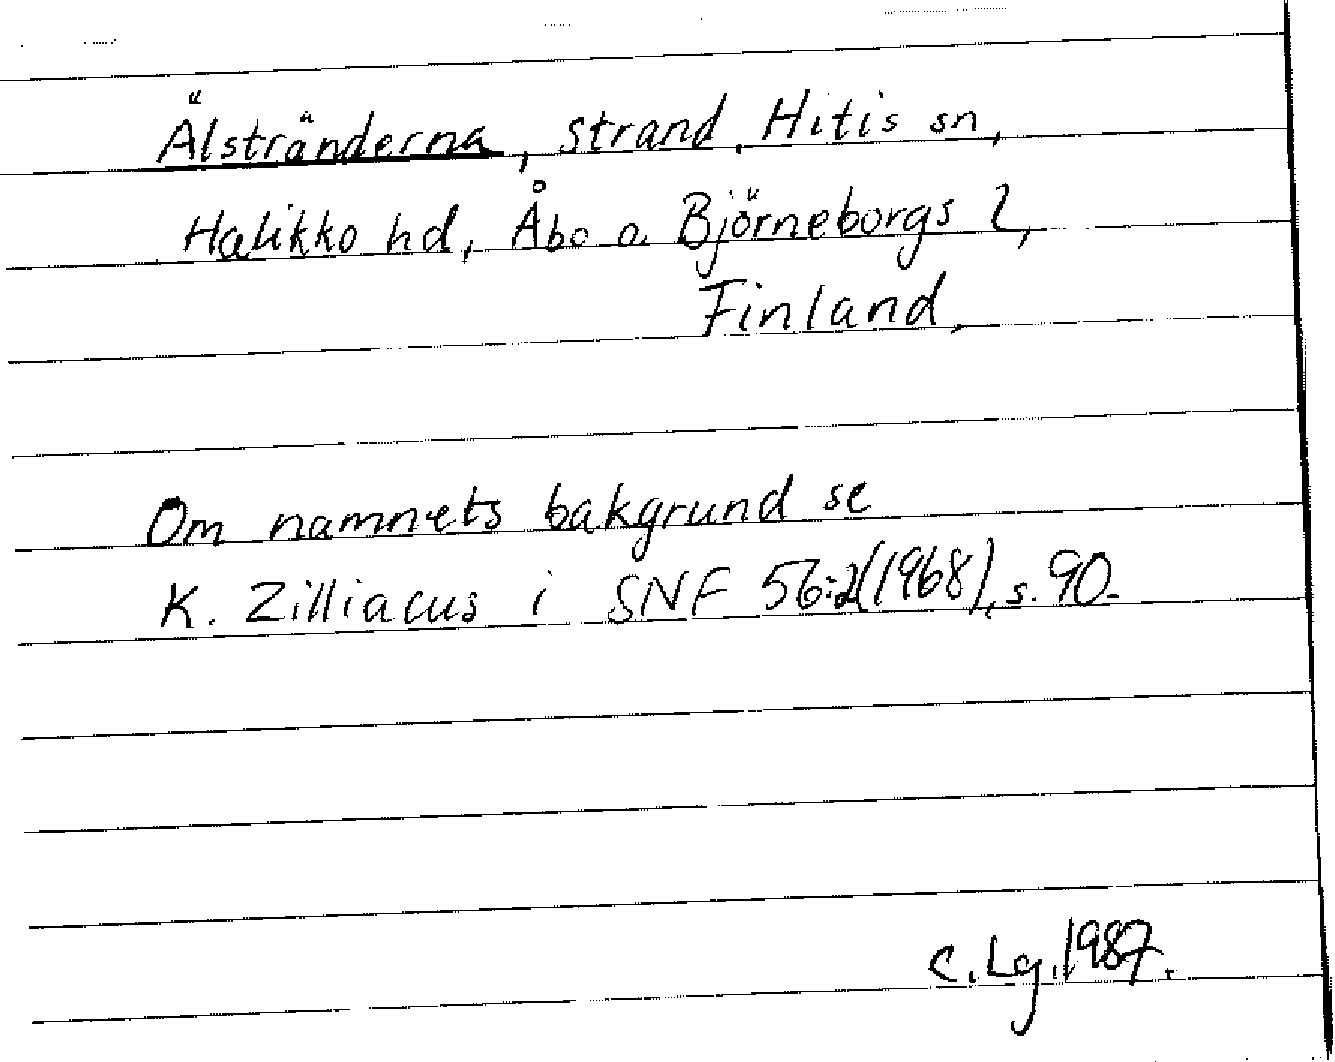 Älstränderna, strand, Hitis sn,
Halikko hd, Åbo o. Björneborgs l,
Finland.
Om namnets bakgrund se
K. Zilliacus i SNF 56:2(1968), s. 90.
C. Lg. 1987.